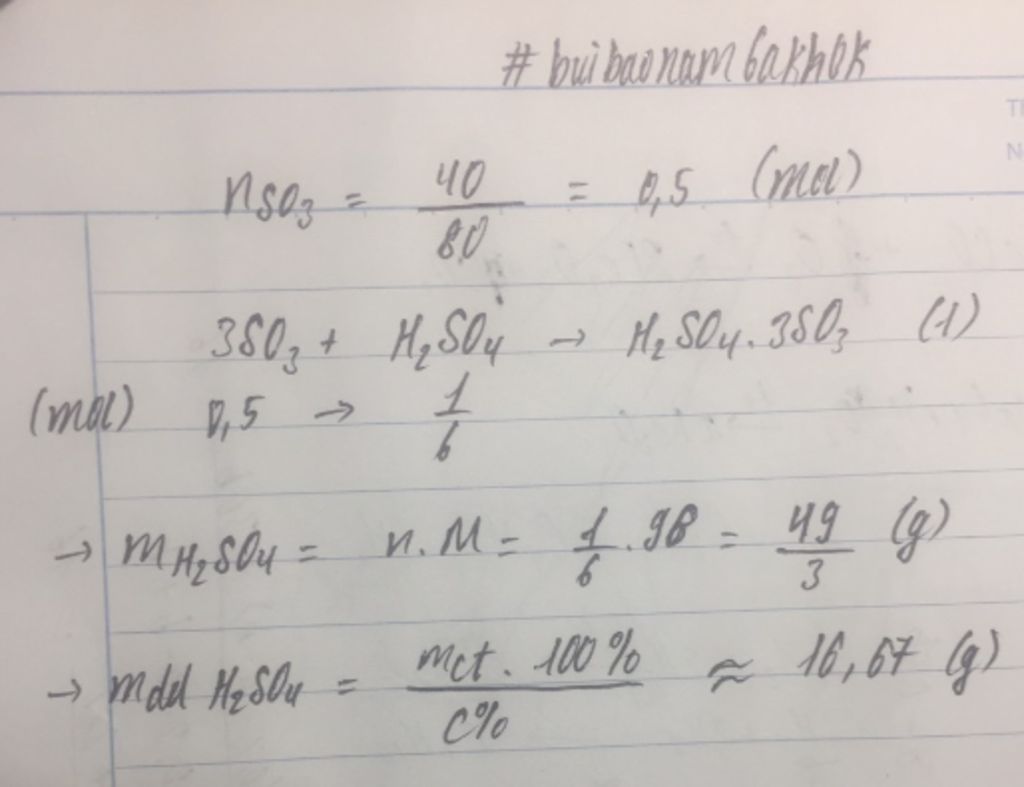 #buibaonam6akhok
nSO₃ = 40/80 = 0,5 (mol)
3SO₃ + H₂SO₄ → H₂SO₄.3SO₃ (1)
(mol) 0,5 → 1/6
→ mH₂SO₄ = n.M = 1/6 . 98 = 49/3 (g)
→ mdd H₂SO₄ = mct. 100% / C% ≈ 16,67 (g)